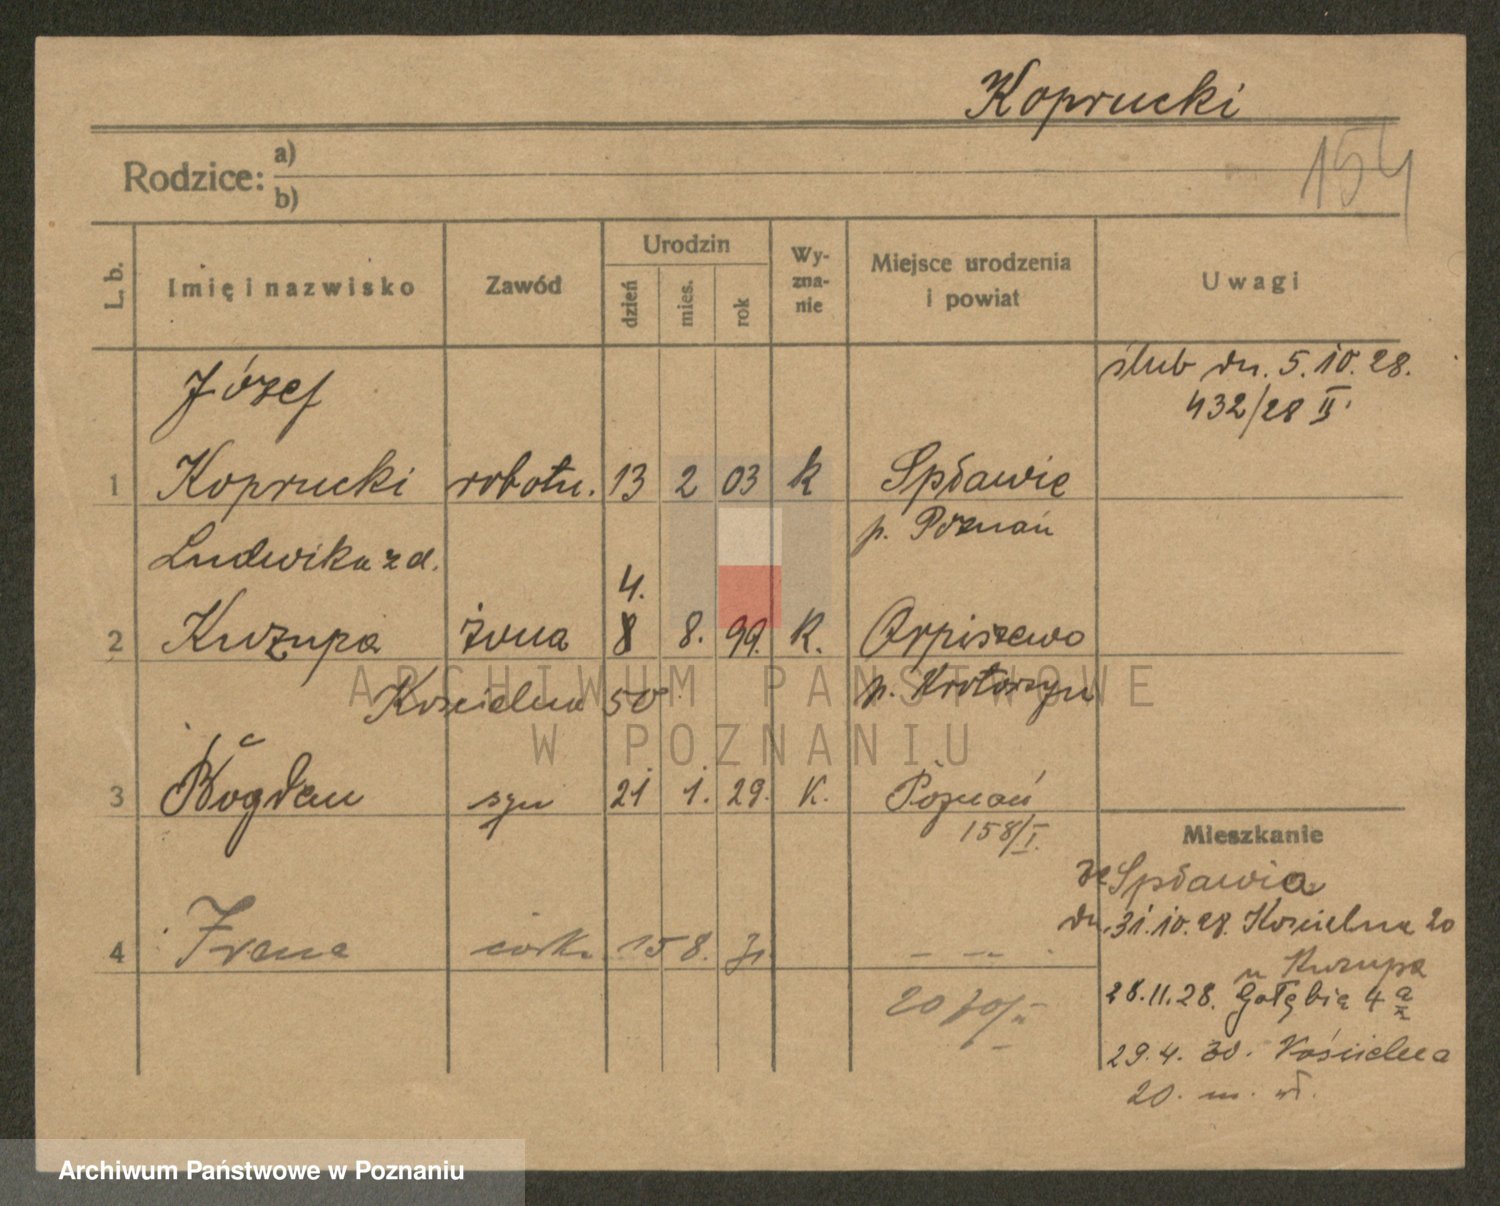 Koprucki
154
Rodzice: a)
b)
L. b. Imię i nazwisko Zawód Urodzin dzień mies. rok Wyznanie Miejsce urodzenia i powiat Uwagi
Józef ślub dn. 5.10.28.
432/28 II.
1 Koprucki robotn. 13 2 03 k Spławie
p. Poznań
Ludwika z d.
4.
2 Kurzupa żona 8 8. 99. k. Orpiszewo
Kościelna 50 p. Krotoszyn
3 Bogdan syn 21 1. 29. K. Poznań
158/I.
Mieszkanie
ze Spławia
dn. 31.10.28. Kościelna 20
u Kurzupa
4 Irena córk. 15 8. 31.
28.11.28. Gołębia 4
29.4.30. Kościelna
20. m.
ARCHIWUM PAŃSTWOWE
W POZNANIU
Archiwum Państwowe w Poznaniu